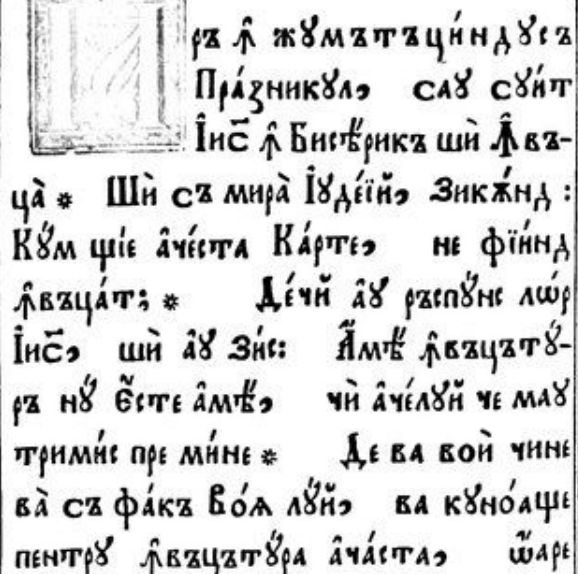 Иръ ꙟ҆ жꙋмътъци́ндꙋсъ
Пра́зникꙋл, саꙋ сꙋи́т
І҆ис҃ ꙟ҆ Бисѣ́рикъ шѝ Ꙟ҆въ-
ца̀ * Шѝ съ мира̀ І҆ꙋде́їй, Зикѫ́нд :
Кꙋ́м щі́е а҆че́ста Ка́рте, не фїи́нд
ꙟ҆въца́т; * Де́чй а҆ꙋ ръспꙋ́нс лѡ́р
І҆ис҃, шѝ а҆ꙋ Зи́с: А҆мѣ̀ ꙟ҆въцътꙋ́-
ръ нꙋ̀ є҆́сте а҆мѣ̀, чѝ а҆че́лꙋй че маꙋ
трими́с пре ми́не * Де ва воѝ чине
ва̀ съ фа́къ во́ѧ лꙋ́й, ва кꙋно́аще
пентрꙋ ꙟ҆въцътꙋ́ра а҆ча́ста, ѡ҆аре